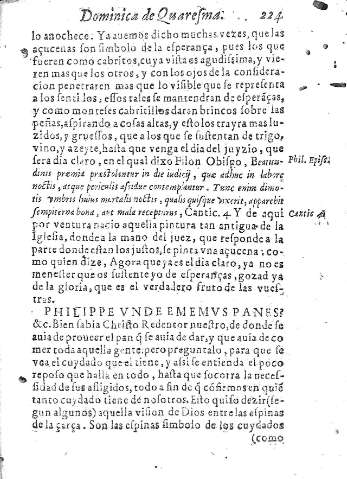 Dominica de Quaresma. 224
lo anochece. Ya auemos dicho muchas vezes, que las
açucenas son simbolo de la esperança, pues los que
fueren como cabritos, cuya vista es agudissima, y vie-
ren mas que los otros, y con los ojos de la considera-
cion penetraren mas que lo visible que se representa
a los sentidos, essos tales se mantendran de esperãças,
y como monteses cabritillos daran brincos sobre las
peñas, aspirando a cosas altas, y estolos trayra mas lu-
zidos, y gruessos, que a los que se sustentan de trigo,
vino, y azeyte, hasta que venga el dia del juyzio, que
sera dia claro, en el qual dixo Filon Obispo, Beatitu-
dinis præmia præstolentur in die iudicij, que adhuc in labore Phil. Episc.
noctis, atque periculis assidue contemplantur. Tunc enim dimo-
tis vmbris huius mortalis noctis, qualis quisque vixerit, apparebit
sempiterna bona, aut mala recepturus, Cantic. 4. Y de aqui Cantic. 4.
por ventura nacio aquella pintura tan antigua de la
Iglesia, donde a la mano del juez, que responde a la
parte donde estan los justos, se pinta vna açucena: co-
mo quien dize, Agora que ya es el dia claro, ya no es
menester que os sustenteys de esperanças, gozad ya
de la gloria, que es el verdadero fruto de las vues-
tras.
PHILIPPE VNDE EMEMVS PANES?
&c. Bien sabia Christo Redentor nuestro, de donde se
auia de proueer el pan q̃ se auia de dar, y que auia de co
mer toda aquella gente, pero preguntalo, para que se
vea el cuydado que el tiene, y assi se entienda el poco
reposo que halla en todo, hasta que socorra la neces-
sidad de sus afligidos, todo a fin de q̃ cõfiemos en quiẽ
tanto cuydado tiene dẽ nosotros. Esto quiso dezir (se-
gun algunos) aquella vision de Dios entre las espinas
de la çarça. Son las espinas simbolo de los cuydados
(como